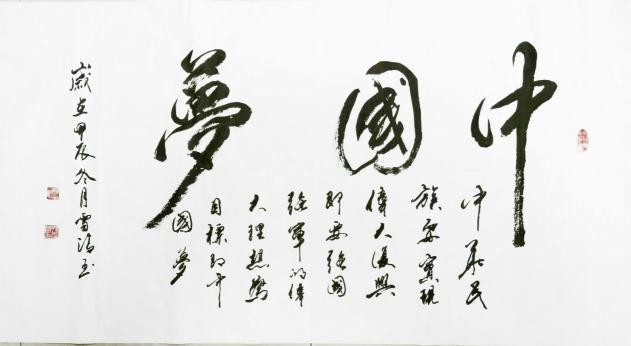 中國夢
中華民
族要實現
偉大復興
即要強國
強軍的偉
大理想為
目標的中
國夢
歲在甲辰冬月雪浩書